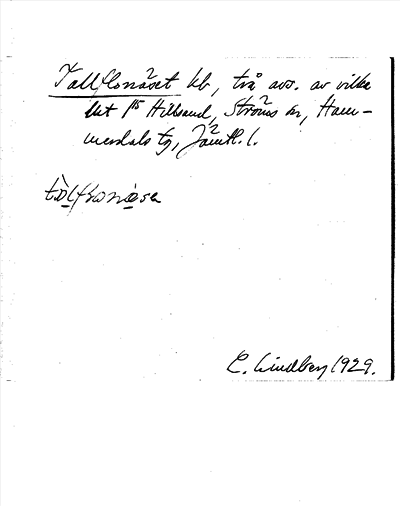 Tallflonäset kb, två avs. av vilka
det 1⁰ Hillsand, Ströms sn, Ham-
merdals tg, Jämtl. l.
tàlflonæse
C. Lindberg 1929.